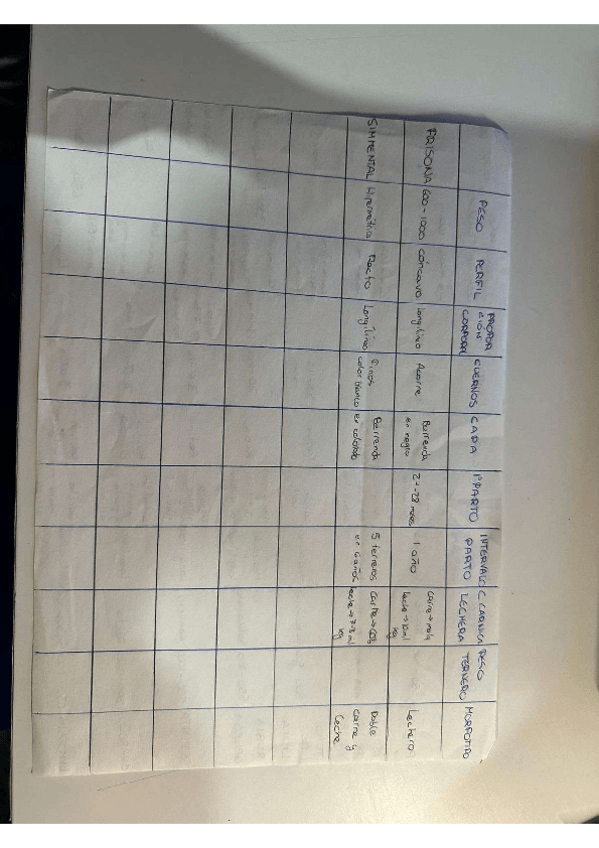 PESO
PERFIL
PROPOR
CIÓN
CORPORAL
CUERNOS
CAPA
1º PARTO
INTERVALO
PARTO
C. CARNICA
LECHERA
PESO
TERNERO
MORFOTIPO
FRISONA
600-1000
cóncavo
Longilíneo
Acorne
Berrenda
en negro
1 año
Carne → mala
Lechero
SIMMENTAL
Hipermétrica
Recto
Longilíneo
Finos
color blanco
Berrenda
en colorado
5 terneros
en 6 años
Doble
carne y
leche